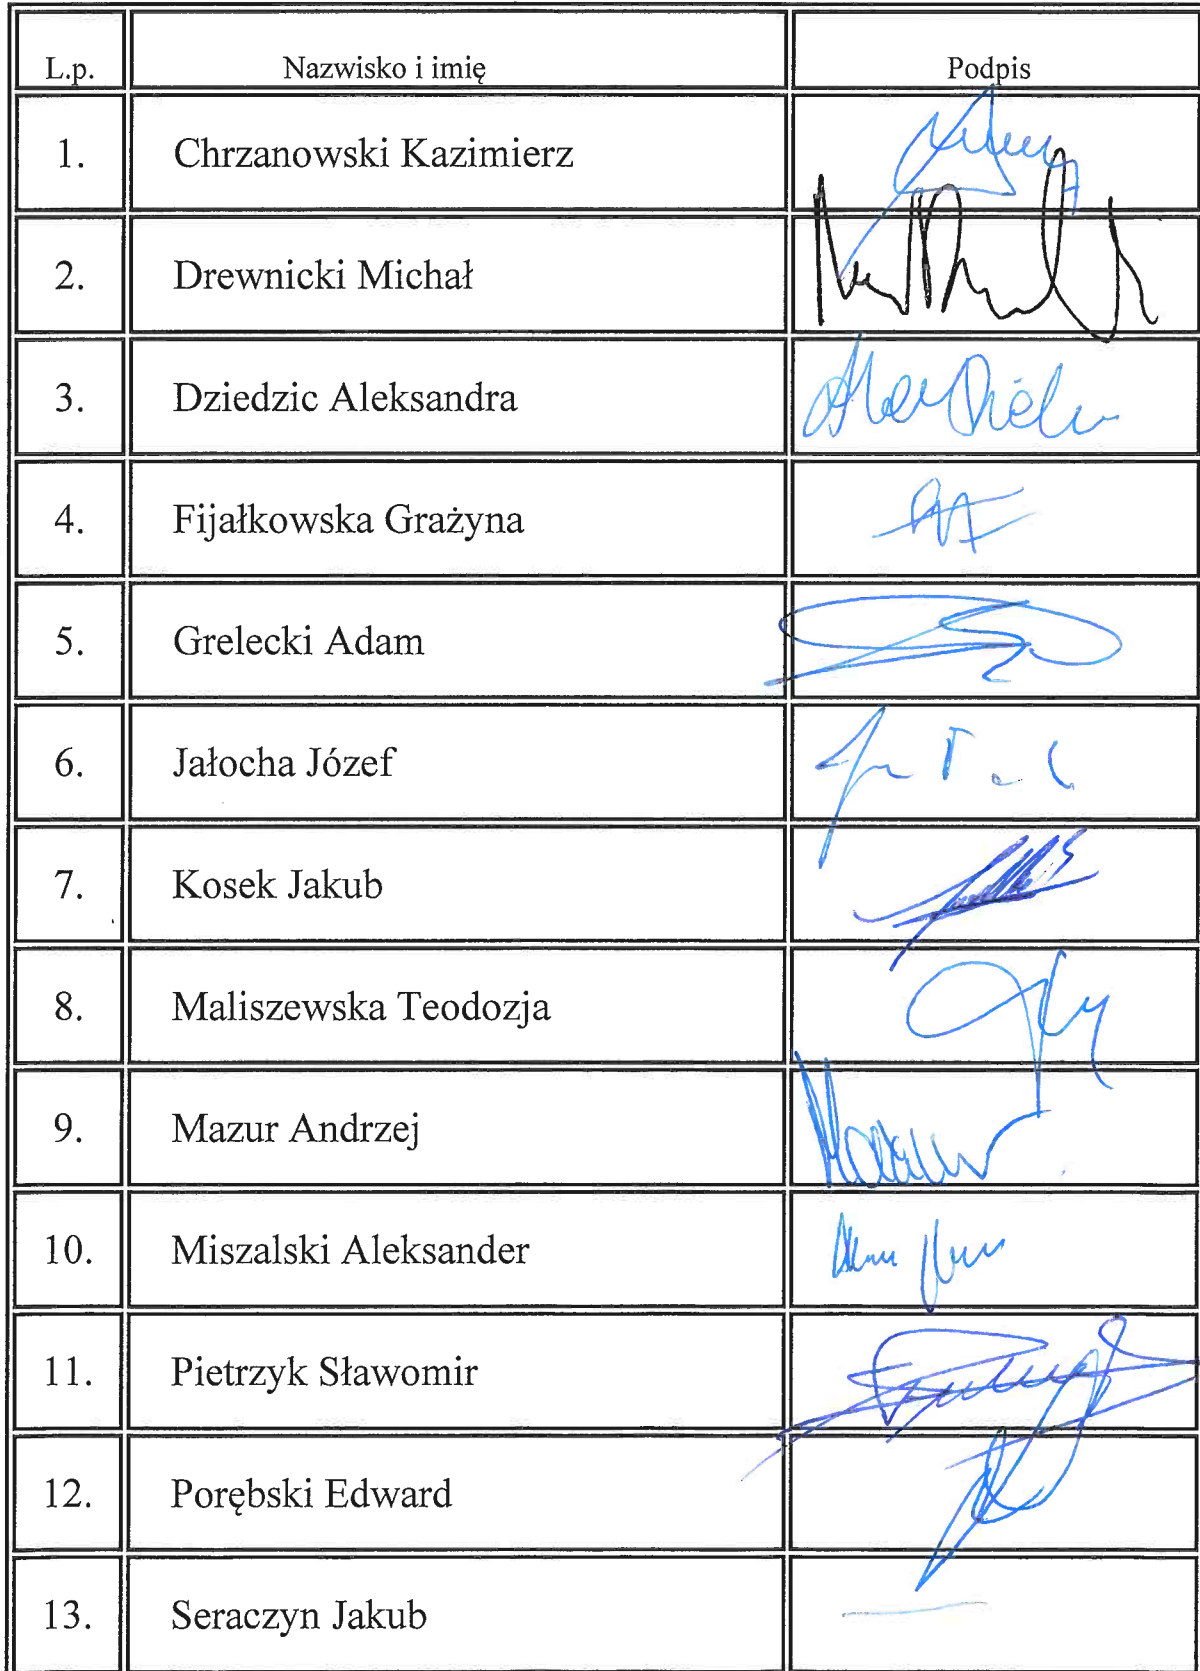 L.p. Nazwisko i imię Podpis
1. Chrzanowski Kazimierz
2. Drewnicki Michał
3. Dziedzic Aleksandra
4. Fijałkowska Grażyna
5. Grelecki Adam
6. Jałocha Józef
7. Kosek Jakub
8. Maliszewska Teodozja
9. Mazur Andrzej
10. Miszalski Aleksander
11. Pietrzyk Sławomir
12. Porębski Edward
13. Seraczyn Jakub